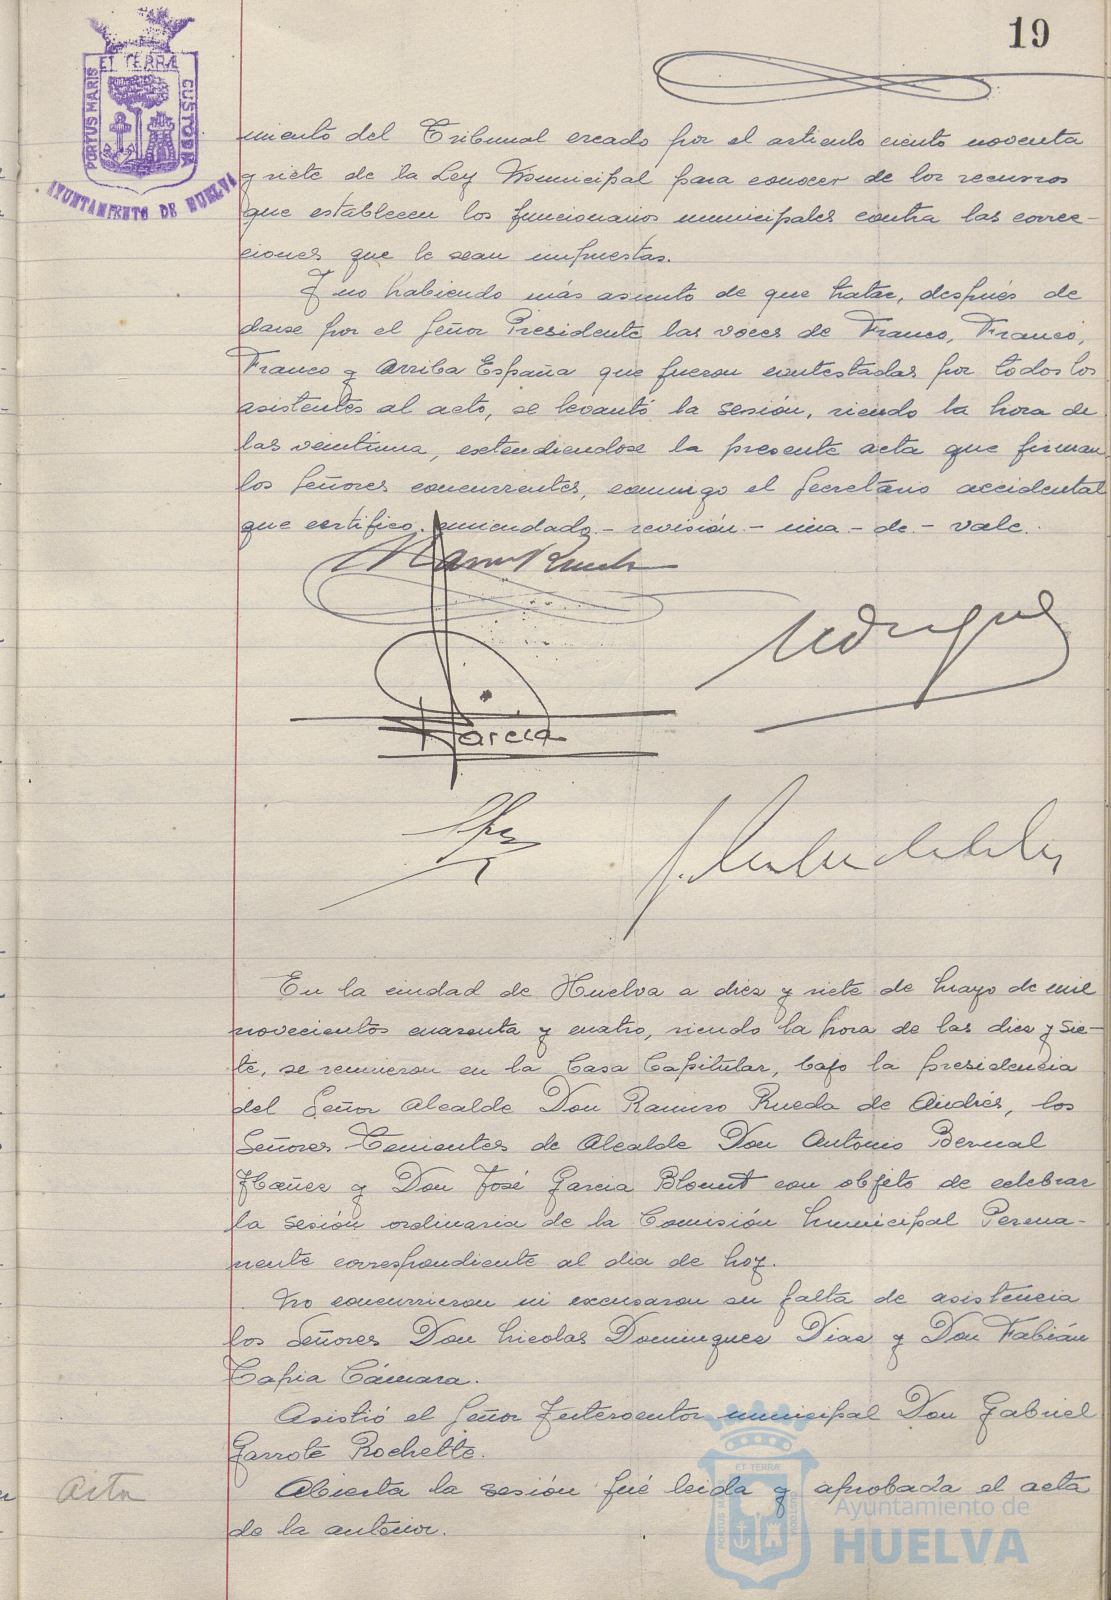 19
ET TERRÆ
PORTUS MARIS
CUSTODIA
AYUNTAMIENTO DE HUELVA
miento del Tribunal creado por el articulo ciento noventa
y siete de la Ley Municipal para conocer de los recursos
que establecen los funcionarios municipales contra las correc-
ciones que le sean impuestas.
Y no habiendo más asunto de que tratar, después de
darse por el Señor Presidente las voces de Franco, Franco,
Franco y Arriba España que fueron contestadas por todos los
asistentes al acto, se levantó la sesión, siendo la hora de
las veintiuna, extendiendose la presente acta que firman
los Señores concurrentes, conmigo el Secretario accidental
que certifico. enmendado.- revisión - una - de - vale.
García
En la ciudad de Huelva a diez y siete de Mayo de mil
novecientos cuarenta y cuatro, siendo la hora de las diez y sie-
te, se reunieron en la Casa Capitular, bajo la presidencia
del Señor Alcalde Don Ramiro Rueda de Andrés, los
Señores Tenientes de Alcalde Don Antonio Bernal
Ibañez y Don José Garcia Blount con objeto de celebrar
la sesión ordinaria de la Comisión Municipal Perma-
nente correspondiente al dia de hoy.
No concurrieron ni excusaron su falta de asistencia
los Señores Don Nicolas Dominguez Diaz y Don Fabián
Tapia Cámara.
Asistió el Señor Interventor municipal Don Gabriel
Garrote Rochette.
Acta
Abierta la sesión fué leida y aprobada el acta
de la anterior.
ET TERRÆ
Ayuntamiento de
HUELVA